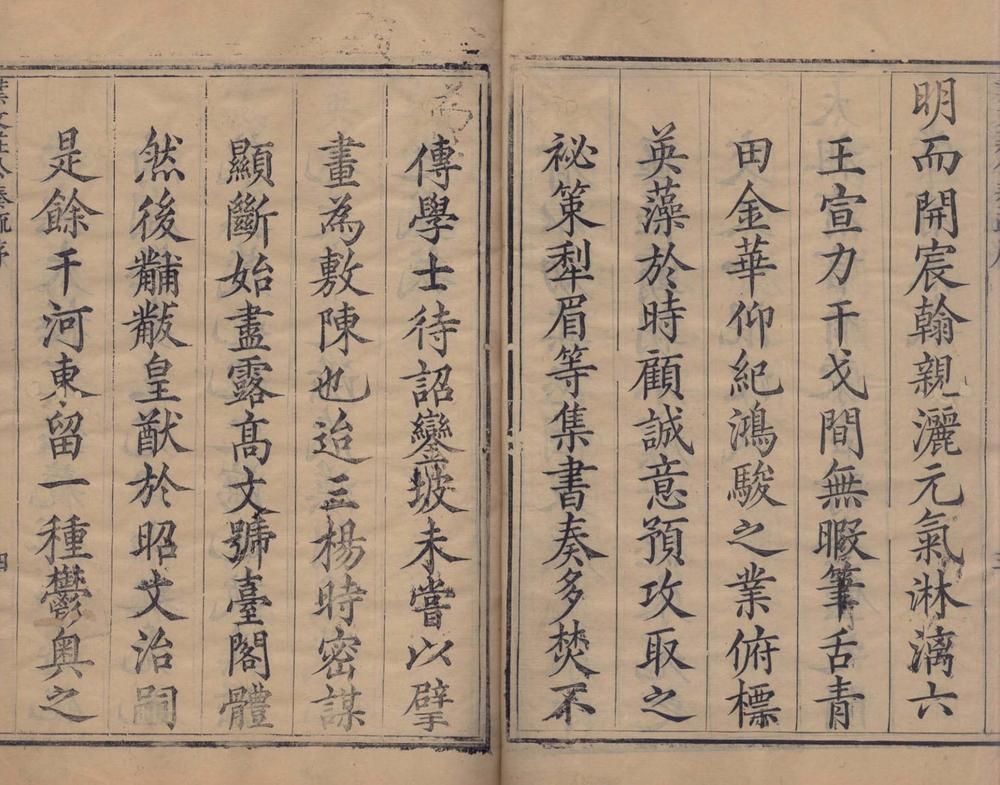 明而開宸翰親灑元氣淋漓六
王宣力干戈間無暇筆舌青
田金華仰紀鴻駿之業俯標
英藻於時顧誠意預攻取之
祕策犁眉等集書奏多焚不
傳學士待詔鑾坡未嘗以擘
畫為敷陳也迨三楊時密謀
顯斷始盡露高文號臺閣體
然後黼黻皇猷於昭文治嗣
是餘干河東留一種鬱奥之
葉文莊公奏疏序
四